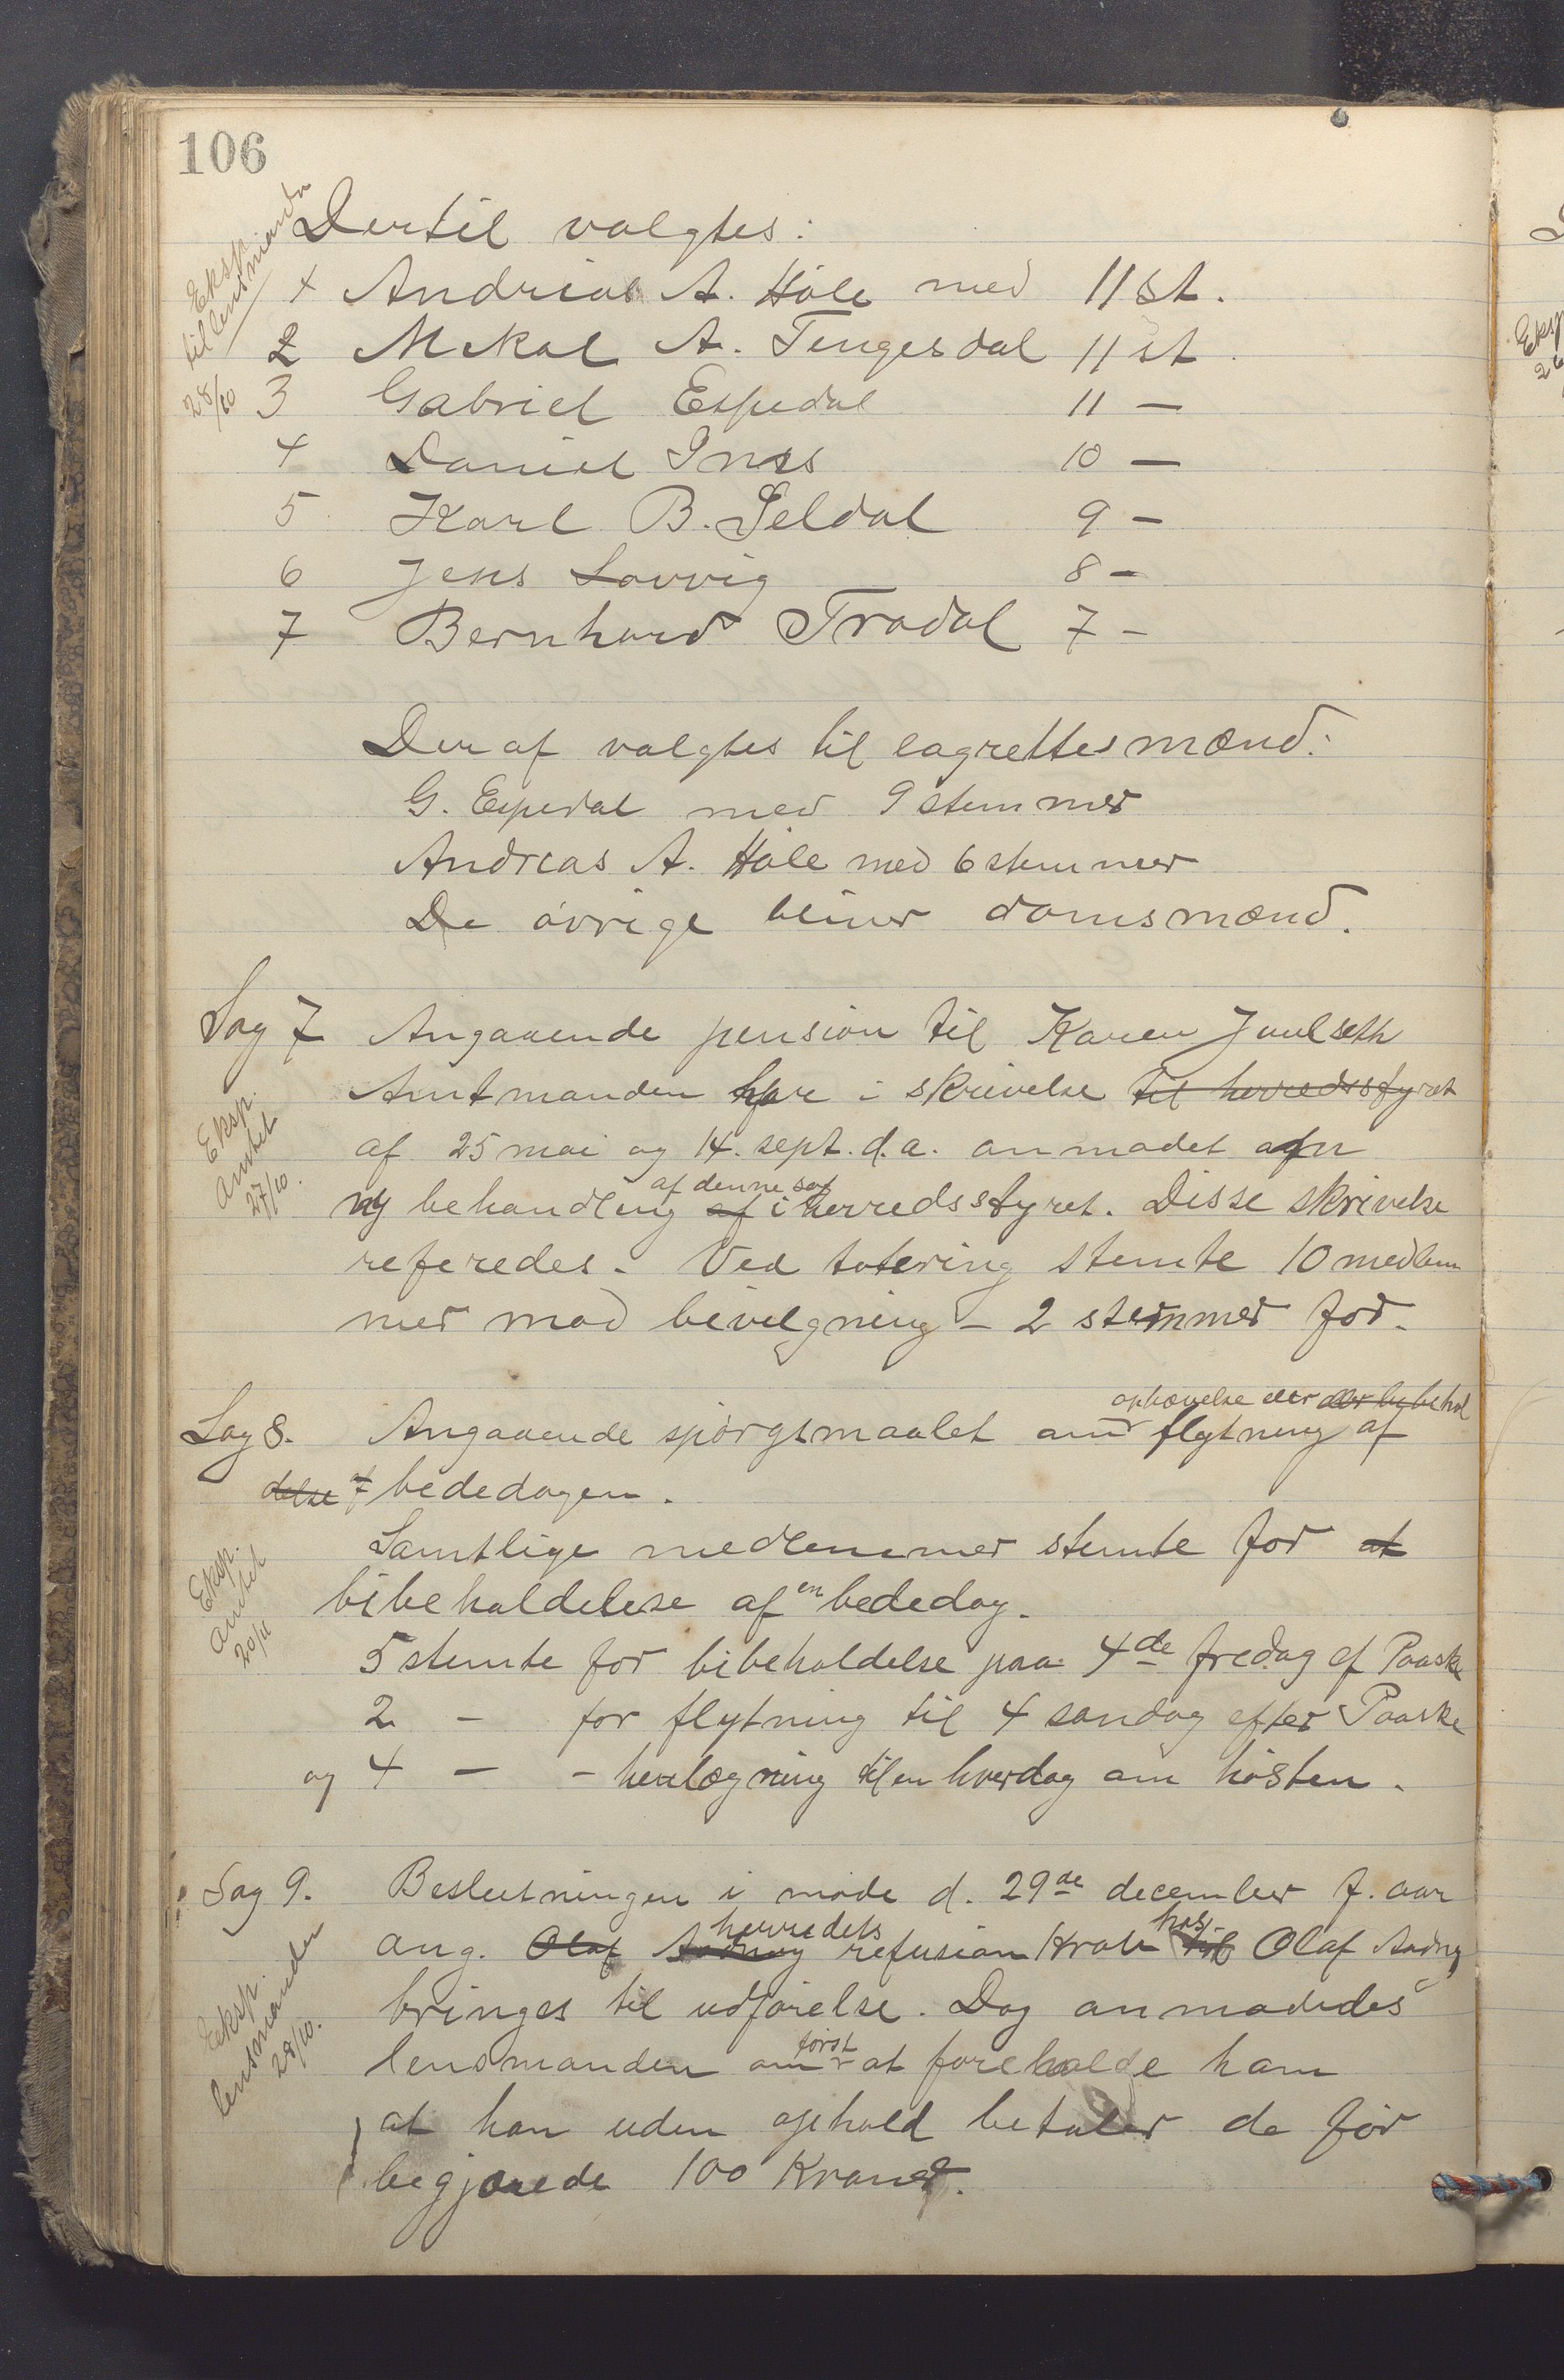 106
Dertil valgtes:
Eksp.
til lensmanden
28/10
+ Andrias A. Håle med 11 st.
2 Mikal A. Tengesdal 11 st.
3 Gabriel Espedal 11 —
4 Daniel 10 —
5 Karl B. Seldal 9 –
6 Jens Løvvig 8 –
7 Bernhard Frødal 7 –
Deraf valgtes til lagrettesmænd:
G. Espedal med 9 stemmer
Andreas A. Håle med 6 stemmer
De øvrige bliver domsmænd.
Sag 7 Angaaende pension til Karen Juulseth
Eksp.
amtet
27/10.
Amtmanden har i skrivelse til herredsstyret
af 25 mai og 14. sept. d.a. anmodet om
ny behandling af af denne sag i herredsstyret. Disse skrivelse
referedes. Ved votering stemte 10 medlem
mer mod bevilgning – 2 stemmer for.
Sag 8. Angaaende spørgsmaalet om ophævelse eller eller bibehol flytning af
delse af bededagen.
Eksp.
amtet
20/11
Samtlige medlemmer stemte for at
bibeholdelse af en bededag.
5 stemte for bibeholdelse paa 4de fredag ef Paaske
2 – for flytning til 4 søndag efter Paaske
og 4 – – henlægning til en hverdag om høsten.
Sag 9. Beslutningen i møde d. 29de december f. aar
Eksp.
lensmanden
28/10.
ang. Olaf Aadnøy herredets refusion krav til hos Olaf Aadnøy
bringes til udførelse. Dog anmodedes
lensmanden om først at foreholde ham
at han uden ophold betaler de før
begjærede 100 Kroner.
Eksp
26